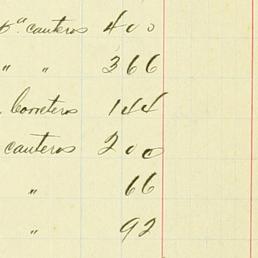 pª. canteros 400
" " 366
Carreteros 144
canteros 200
" 66
" 92